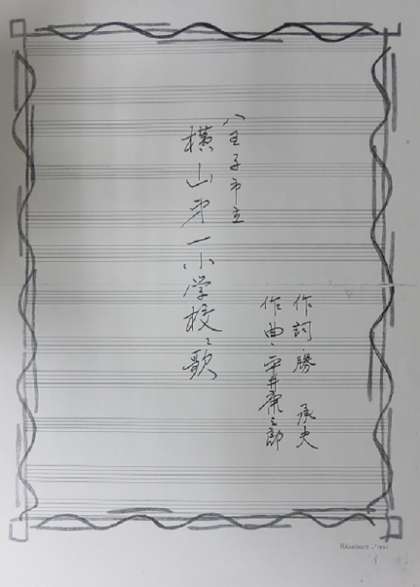 作詞 勝 承夫
作曲 平井康三郎
八王子市立
横山第一小学校々歌